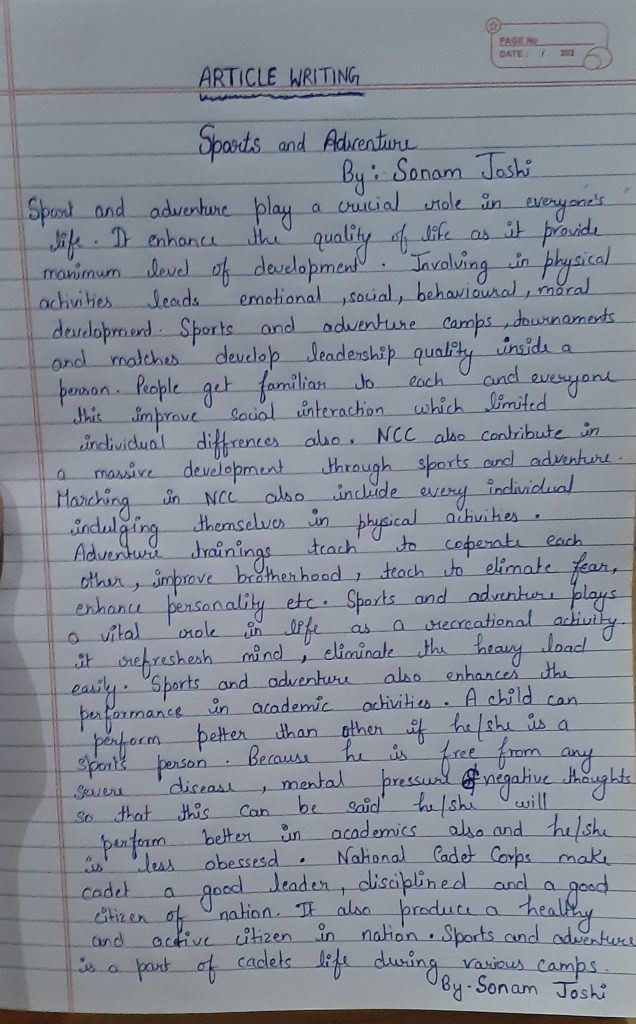 PAGE No
DATE: / 202
ARTICLE WRITING
Sports and Adventure
By: Sonam Joshi
Sport and adventure play a crucial role in everyone's
life. It enhance the quality of life as it provide
manimum level of development. Involving in physical
activities leads emotional, social, behavioural, moral
development. Sports and adventure camps, tournaments
and matches develop leadership quality inside a
person. People get familiar to each and everyone
this improve social interaction which limited
individual diffrences also. NCC also contribute in
a massive development through sports and adventure.
Marching in NCC also include every individual
indulging themselves in physical activities.
Adventure trainings teach to coperate each
other, improve brotherhood, teach to elimate fear,
enhance personality etc. Sports and adventure plays
a vital role in life as a recreational activity.
it refreshesh mind, eliminate the heavy load
easily. Sports and adventure also enhances the
performance in academic activities. A child can
perform better than other if he/she is a
sports person. Because he is free from any
severe disease, mental pressure & negative thoughts
so that this can be said he/she will
perform better in academics also and he/she
is less obessesd. National Cadet Corps make
cadet a good leader, disciplined and a good
citizen of nation. It also produce a healthy
and active citizen in nation. Sports and adventure
is a part of cadets life during various camps.
By-Sonam Joshi